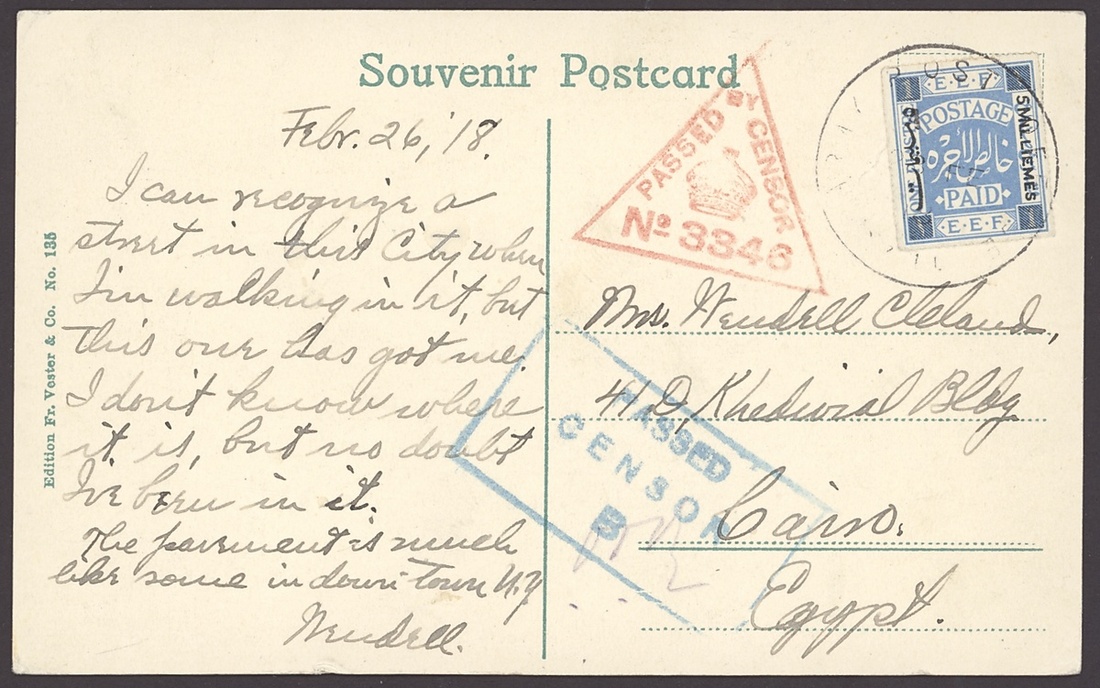 Souvenir Postcard
Febr. 26, '18.
I can recognize a
street in this City when
I'm walking in it, but
this one has got me.
I don't know where
it is, but no doubt
I've been in it.
The pavement is much
like some in down town N.Y.
Wendell.
Edition Fr. Vester & Co. No. 135
PASSED BY CENSOR
No 3346
E.E.F.
POSTAGE
خالص الاجره
PAID
E.E.F.
5 MILLIEMES
Mrs. Wendell Cleland,
41 D, Khedivial Bldg
Cairo.
Egypt.
PASSED
CENSOR
B